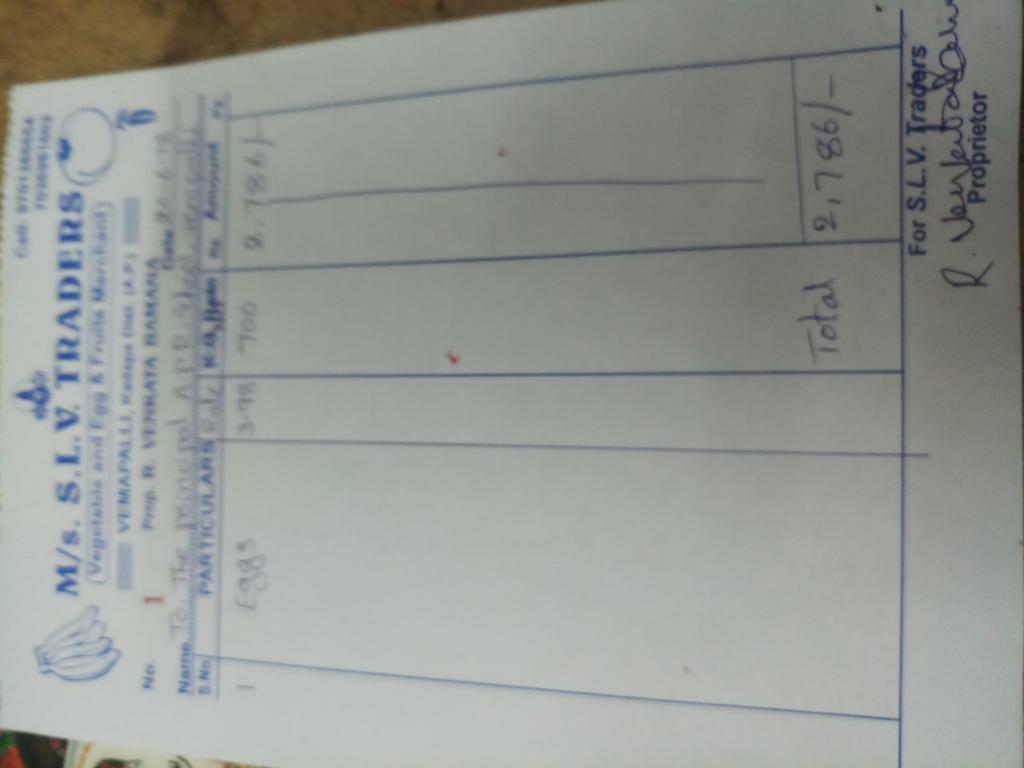 Cell: 9701386664
7036991603
M/s. S.L.V. TRADERS
(Vegetable and Egg & Fruits Merchant)
VEMAPALLI, Kadapa Dist (A.P.)
Prop. R. VENKATA RAMANA
No. 1 Date 20.6.18
Name To The Principal A.P.R. School
S.No. PARTICULARS Rate K.G. Rs. Amount Ps.
1 Eggs 3.98 700 2,786/-
Total 2,786/-
For S.L.V. Traders
R. Venkata
Proprietor